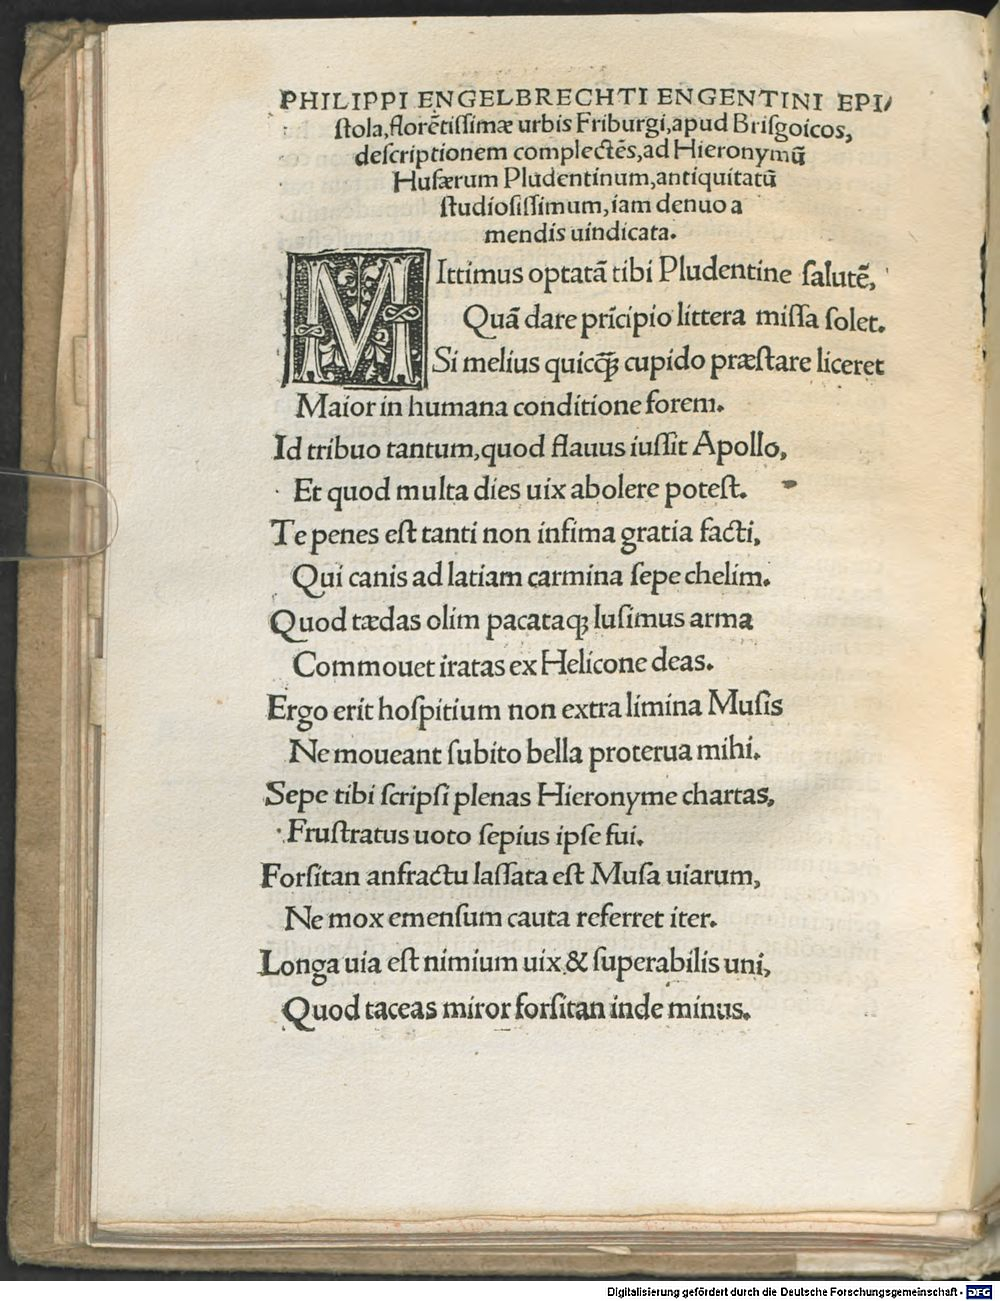 PHILIPPI ENGELBRECHTI ENGENTINI EPI/
ſtola,florẽtiſſimæ urbis Friburgi,apud Briſgoicos,
deſcriptionem complectẽs,ad Hieronymũ
Huſærum Pludentinum,antiquitatũ
ſtudioſiſſimum,iam denuo a
mendis uindicata.
MIttimus optatã tibi Pludentine ſalutẽ,
Quã dare prĩcipio littera miſſa ſolet.
Si melius quicq̃ꝫ cupido præſtare liceret
Maior in humana conditione forem.
Id tribuo tantum,quod flauus iuſſit Apollo,
Et quod multa dies uix abolere poteſt.
Te penes eſt tanti non infima gratia facti,
Qui canis ad latiam carmina ſepe chelim.
Quod tædas olim pacataqꝫ luſimus arma
Commouet iratas ex Helicone deas.
Ergo erit hoſpitium non extra limina Muſis
Ne moueant ſubito bella proterua mihi.
Sepe tibi ſcripſi plenas Hieronyme chartas,
Fruſtratus uoto ſepius ipſe fui.
Forſitan anfractu laſſata eſt Muſa uiarum,
Ne mox emenſum cauta referret iter.
Longa uia eſt nimium uix & ſuperabilis uni,
Quod taceas miror forſitan inde minus.
Digitalisierung gefördert durch die Deutsche Forschungsgemeinschaft - DFG